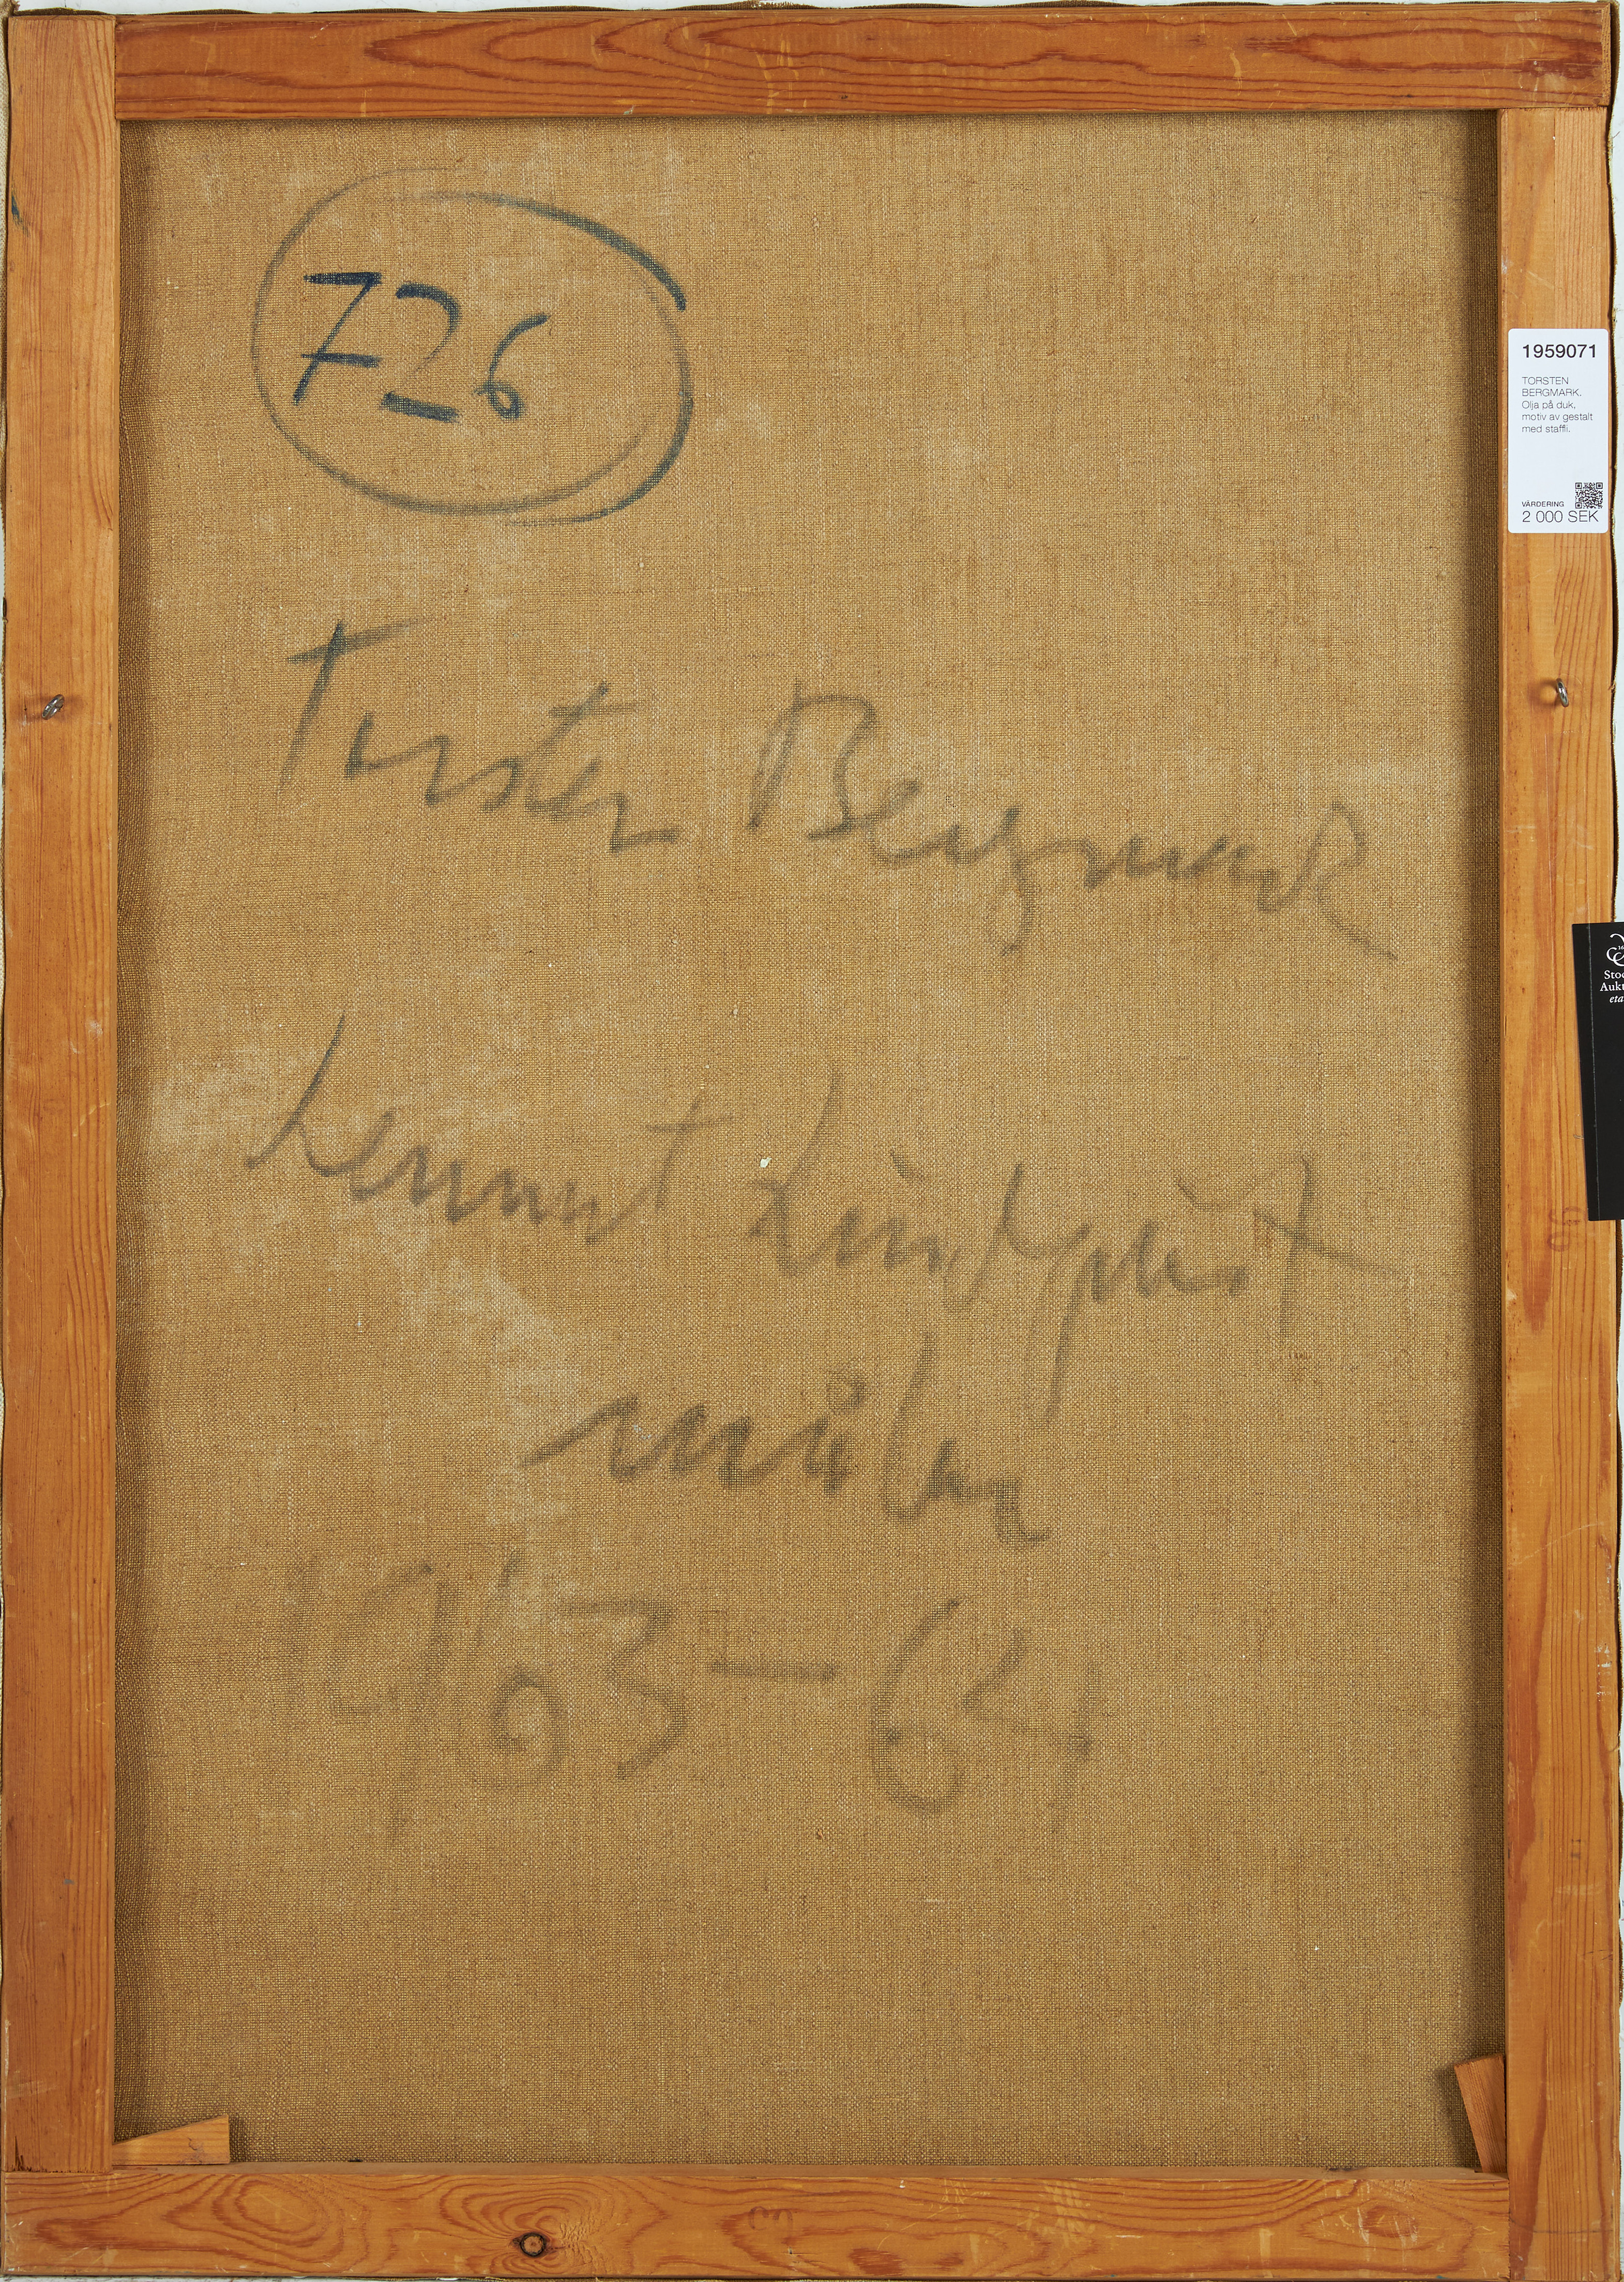 726
Torsten Bergmark
Lennart Lindqvist
målar
1963-64
1959071
TORSTEN
BERGMARK.
Olja på duk,
motiv av gestalt
med staffli.
VÄRDERING
2 000 SEK
Stoc
Auk
eta